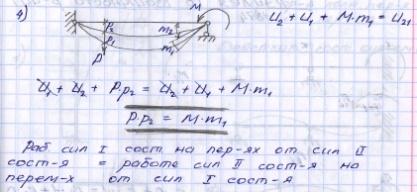 4)
M
U₂ + U₁ + M·m₁ = U₂₁
P₂
m₂
P₁
m₁
P
U₁ + U₂ + P·p₂ = U₂ + U₁ + M·m₁
P·p₂ = M·m₁
Раб сил I сост на пер-ях от сил II
сост-я = работе сил II сост-я на
перем-х от сил I сост-я